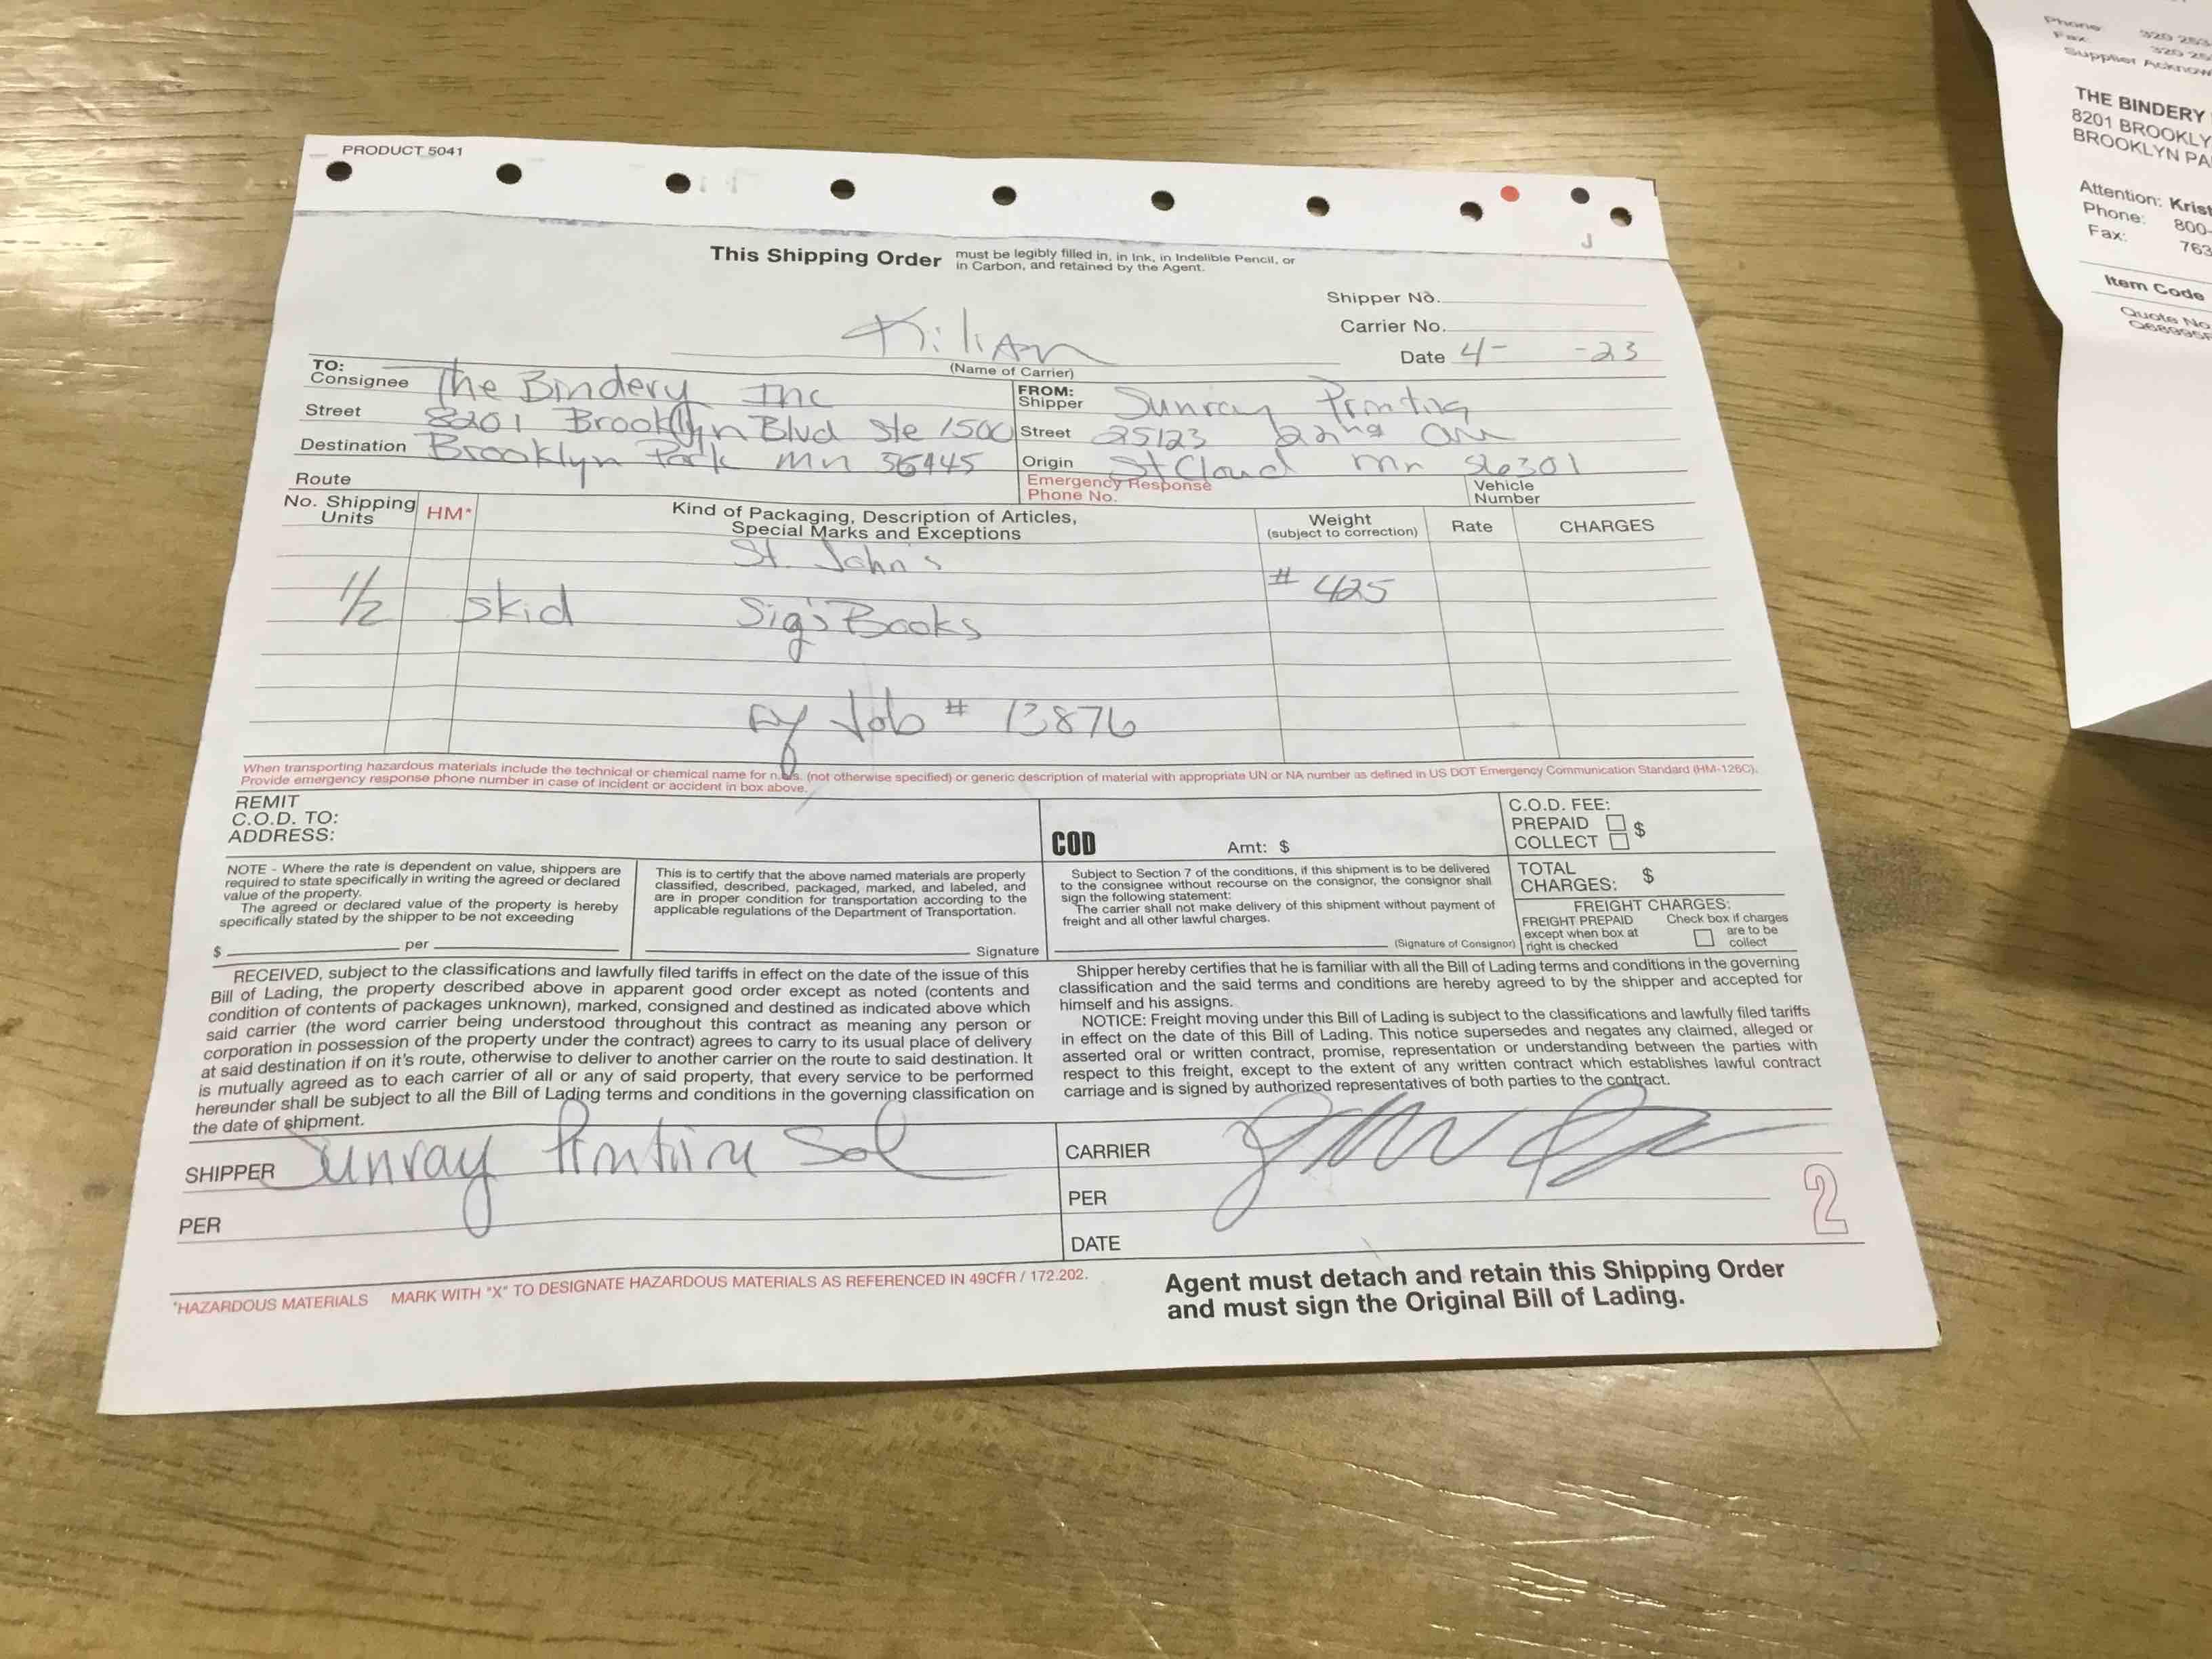 PRODUCT 5041
J
This Shipping Order must be legibly filled in, in Ink, in Indelible Pencil, or
in Carbon, and retained by the Agent.
Shipper No.
Carrier No.
Date 4- -23
Kilian
(Name of Carrier)
TO:
Consignee The Bindery Inc
Street 8201 Brooklyn Blvd Ste 1500
Destination Brooklyn Park Mn
Route
FROM:
Shipper Sunray Printing
Street 25123 22nd
Origin St Cloud Mn 56301
Emergency Response
Phone No.
Vehicle
Number
No. Shipping
Units
HM*
Kind of Packaging, Description of Articles,
Special Marks and Exceptions
Weight
(subject to correction)
Rate
CHARGES
St. John's
1/2 skid Sig's Books # 425
Job # 13876
When transporting hazardous materials include the technical or chemical name for n.o.s. (not otherwise specified) or generic description of material with appropriate UN or NA number as defined in US DOT Emergency Communication Standard (HM-126C).
Provide emergency response phone number in case of incident or accident in box above.
REMIT
C.O.D. TO:
ADDRESS:
COD
Amt: $
C.O.D. FEE:
PREPAID $
COLLECT
NOTE - Where the rate is dependent on value, shippers are
required to state specifically in writing the agreed or declared
value of the property.
The agreed or declared value of the property is hereby
specifically stated by the shipper to be not exceeding
$ per
This is to certify that the above named materials are properly
classified, described, packaged, marked, and labeled, and
are in proper condition for transportation according to the
applicable regulations of the Department of Transportation.
Signature
Subject to Section 7 of the conditions, if this shipment is to be delivered
to the consignee without recourse on the consignor, the consignor shall
sign the following statement:
The carrier shall not make delivery of this shipment without payment of
freight and all other lawful charges.
(Signature of Consignor)
TOTAL
CHARGES: $
FREIGHT CHARGES:
FREIGHT PREPAID
except when box at
right is checked
Check box if charges
are to be
collect
RECEIVED, subject to the classifications and lawfully filed tariffs in effect on the date of the issue of this
Bill of Lading, the property described above in apparent good order except as noted (contents and
condition of contents of packages unknown), marked, consigned and destined as indicated above which
said carrier (the word carrier being understood throughout this contract as meaning any person or
corporation in possession of the property under the contract) agrees to carry to its usual place of delivery
at said destination if on it's route, otherwise to deliver to another carrier on the route to said destination. It
is mutually agreed as to each carrier of all or any of said property, that every service to be performed
hereunder shall be subject to all the Bill of Lading terms and conditions in the governing classification on
the date of shipment.
Shipper hereby certifies that he is familiar with all the Bill of Lading terms and conditions in the governing
classification and the said terms and conditions are hereby agreed to by the shipper and accepted for
himself and his assigns.
NOTICE: Freight moving under this Bill of Lading is subject to the classifications and lawfully filed tariffs
in effect on the date of this Bill of Lading. This notice supersedes and negates any claimed, alleged or
asserted oral or written contract, promise, representation or understanding between the parties with
respect to this freight, except to the extent of any written contract which establishes lawful contract
carriage and is signed by authorized representatives of both parties to the contract.
SHIPPER Sunray Sol
PER
CARRIER
PER
DATE
2
*HAZARDOUS MATERIALS MARK WITH "X" TO DESIGNATE HAZARDOUS MATERIALS AS REFERENCED IN 49CFR / 172.202.
Agent must detach and retain this Shipping Order
and must sign the Original Bill of Lading.
Phone: 320 253
Fax: 320 25
Supplier Acknow
THE BINDERY
8201 BROOKLY
BROOKLYN PA
Attention: Krist
Phone: 800-
Fax: 763
Item Code
Quote No